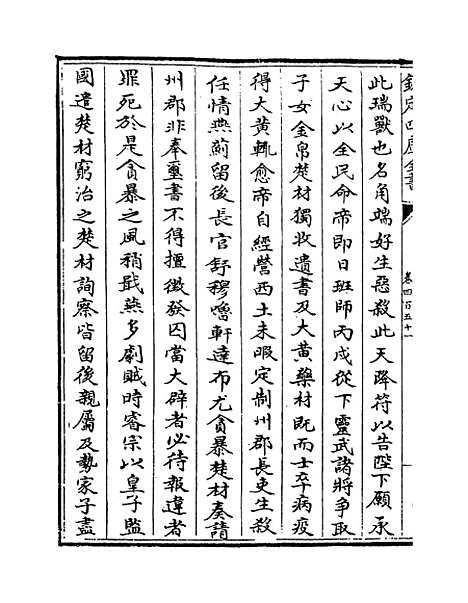 欽定四庫全書
卷四百五十一
此瑞獸也名角端好生惡殺此天降符以告陛下願承
天心以全民命帝即日班師丙戌從下靈武諸將爭取
子女金帛楚材獨收遺書及大黃藥材既而士卒病疫
得大黃輒愈帝自經營西土未暇定制州郡長吏生殺
任情燕薊留後長官舒穆嚕軒達布尤貪暴楚材奏請
州郡非奉璽書不得擅徵發囚當大辟者必待報違者
罪死於是貪暴之風稍戢燕多劇賊時睿宗以皇子監
國遣楚材窮治之楚材詢察皆留後親屬及勢家子盡